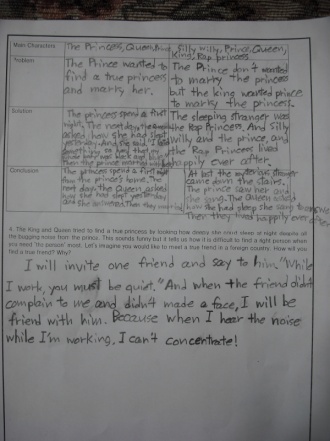 Main Characters
The Princess, Queen,
Silly Willy, Prince, Queen,
King, Rap princess
Problem
The Prince wanted to
find a true princess
and marry her.
The Prince don't wanted
to marry the princess
but the king wanted prince
to marry the princess.
Solution
The princess spend a
night. The next day
asked how she had slept
yesterday. And she said
The sleeping stranger was
the Rap Princess. And Silly
Willy and the prince, and
the Rap Princess lived
happily ever after.
Conclusion
The princess spend a first
the prince's home. The
next day the Queen asked
how she had slept yesterday
and she answered. Then they married
At last the mysterious stranger
came down the stairs.
The prince saw her and
she sung. The Queen asked
how she had sleep she sang to answer
Then they lived happily ever after
4. The King and Queen tried to find a true princess by looking how deeply she could sleep at night despite all
the bugging noise from the prince. This sounds funny but it tells us how it is difficult to find a right person when
you need 'his person' most. Let's imagine you would like to meet a true friend in a foreign country. How will you
find a true friend? Why?
I will invite one friend and say to him. "While
I work, you must be quiet." And when the friend didn't
complain to me and didn't made a face, I will be
friend with him. Because when I hear the noise
while I'm working, I can't concentrate!